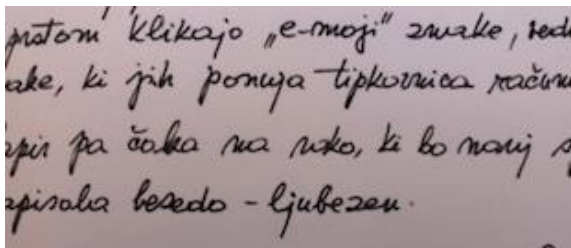 prstom klikajo „e-moji“ znake, 
ake, ki jih ponuja tipkovnica račun
apir pa čaka na roko, ki bo nanj
apisala besedo - ljubezen.